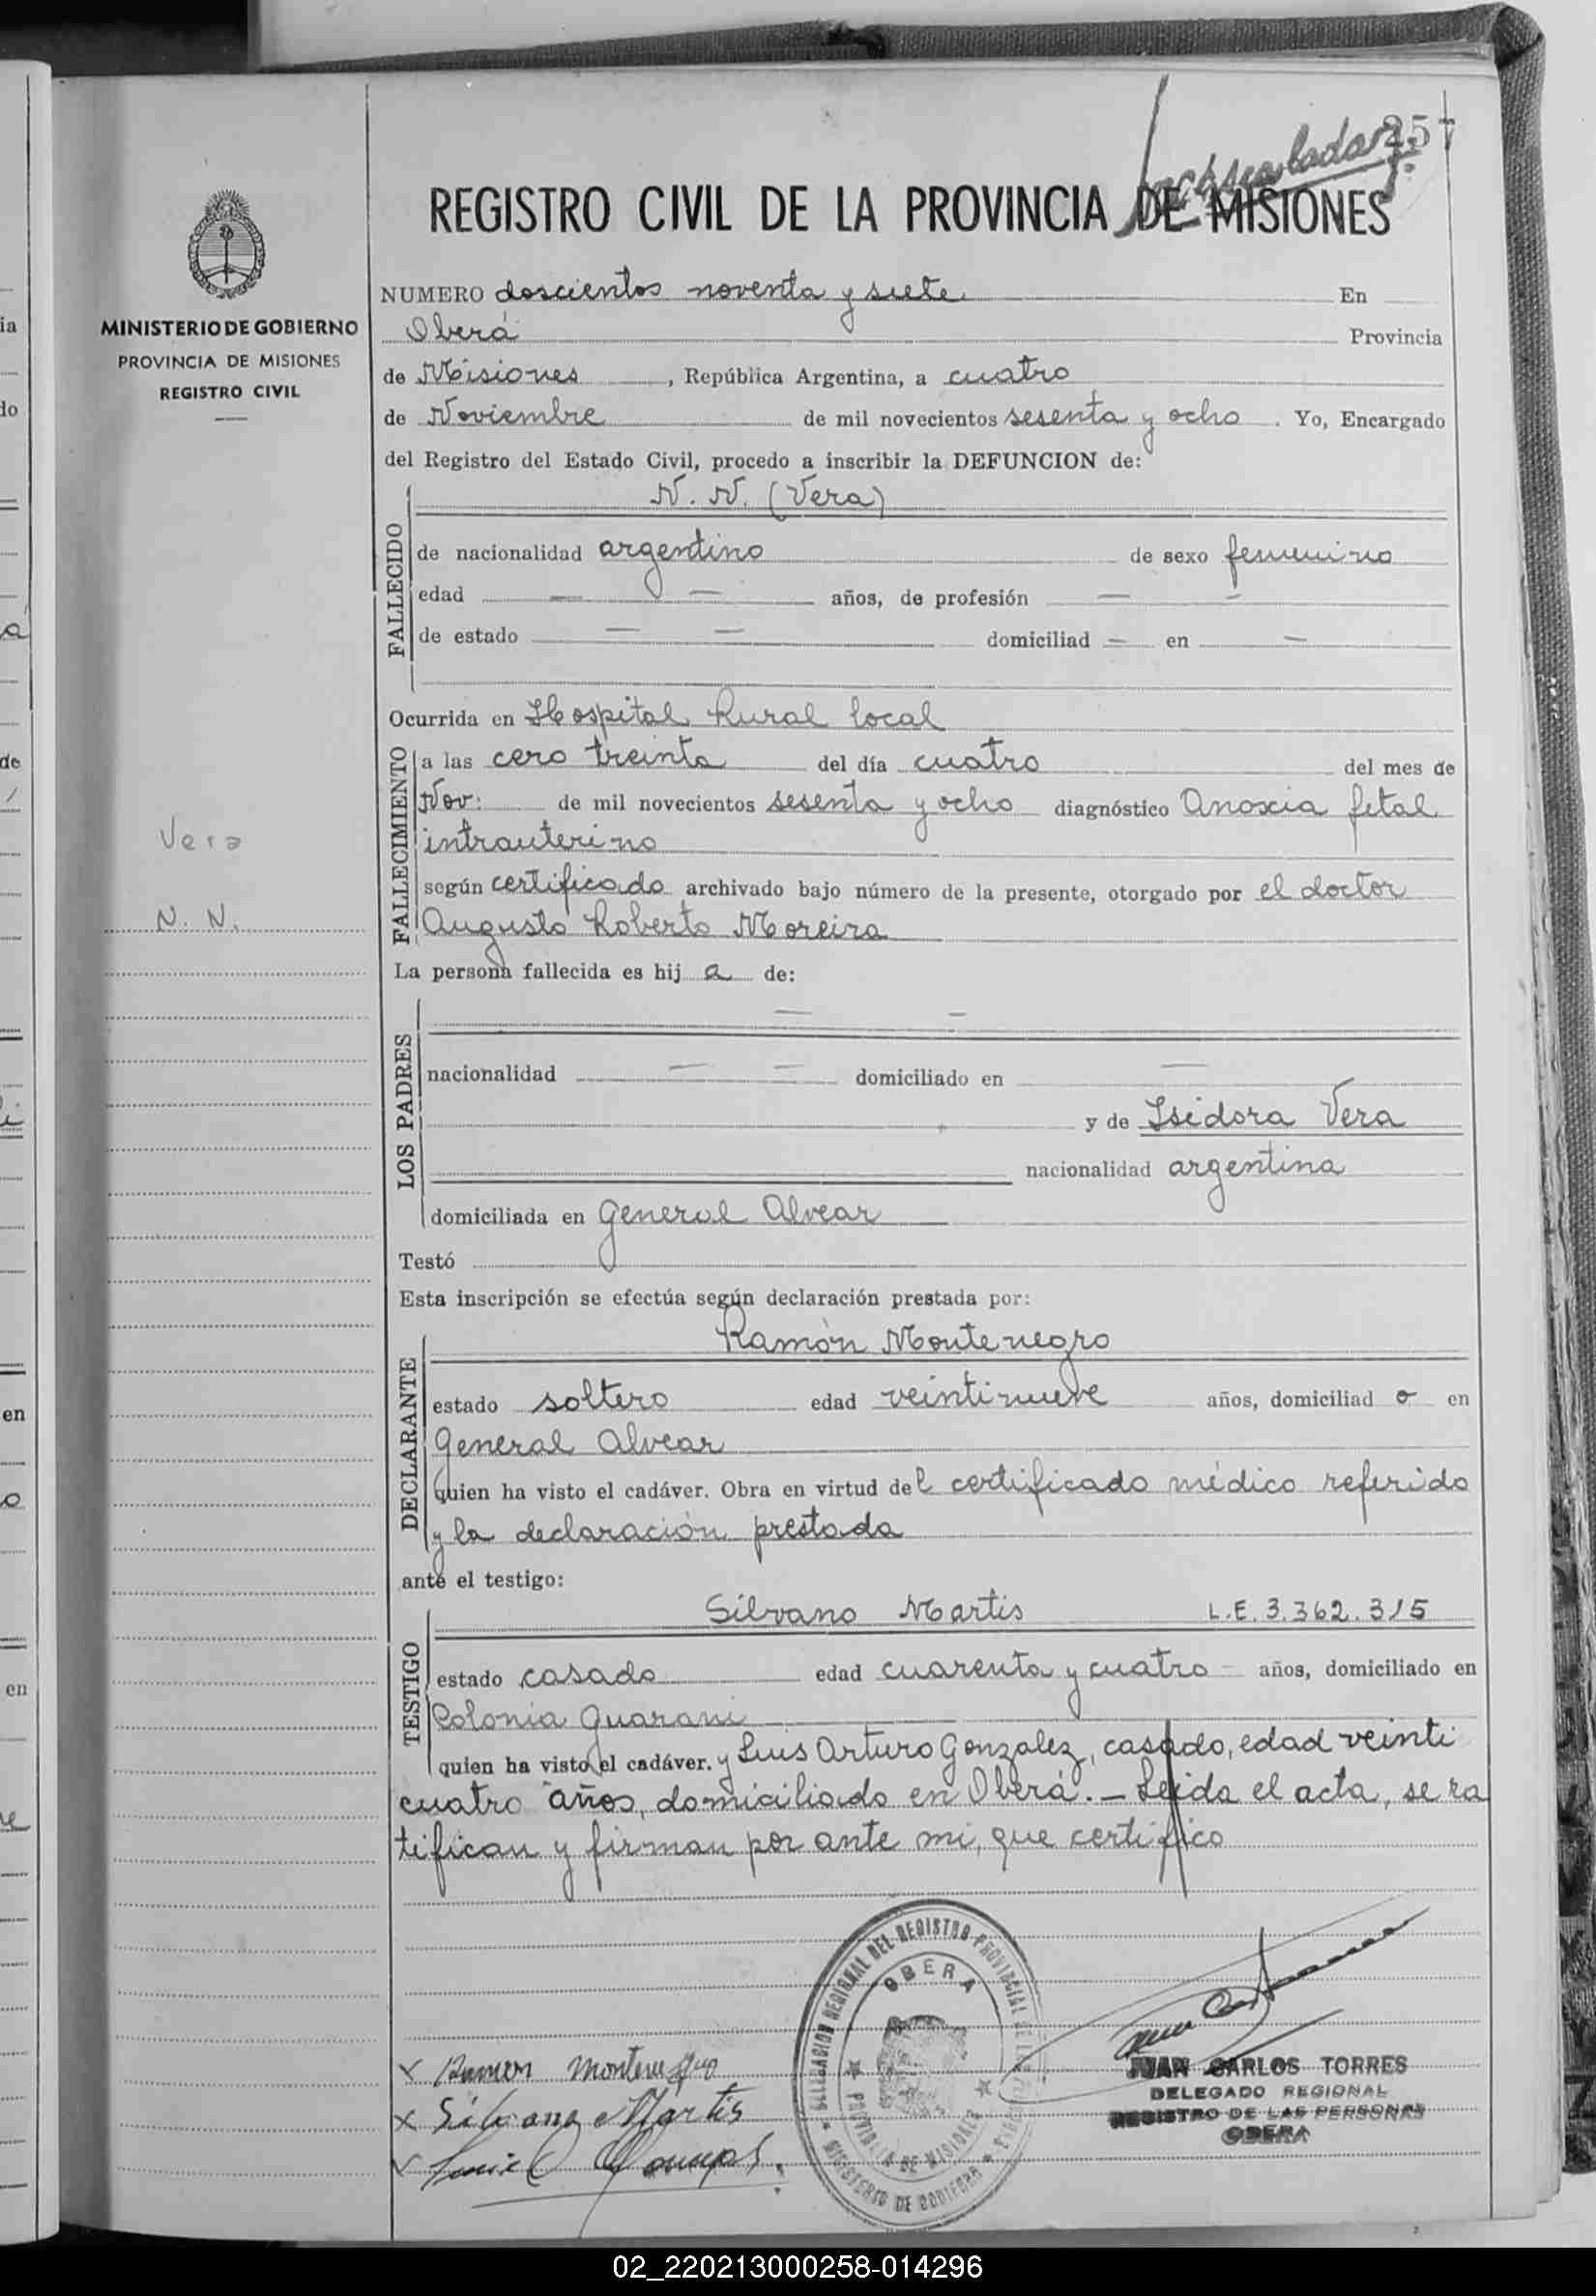 257
REGISTRO CIVIL DE LA PROVINCIA DE MISIONES
MINISTERIO DE GOBIERNO
PROVINCIA DE MISIONES
REGISTRO CIVIL
Vera
N. N.
NUMERO doscientos noventa y siete En
Oberá Provincia
de Misiones, República Argentina, a cuatro
de Noviembre de mil novecientos sesenta y ocho. Yo, Encargado
del Registro del Estado Civil, procedo a inscribir la DEFUNCION de:
N. N. (Vera)
FALLECIDO
de nacionalidad argentino de sexo femenino
edad — — años, de profesión — —
de estado — — domiciliad — en —
Ocurrida en Hospital Rural local
FALLECIMIENTO
a las cero treinta del día cuatro del mes de
Nov: de mil novecientos sesenta y ocho diagnóstico Anoxia fetal
intrauterino
según certificado archivado bajo número de la presente, otorgado por el doctor
Augusto Roberto Moreira
La persona fallecida es hij a de:
— —
LOS PADRES
nacionalidad — — domiciliado en —
y de Isidora Vera
nacionalidad argentina
domiciliada en General Alvear
Testó
Esta inscripción se efectúa según declaración prestada por:
Ramón Montenegro
DECLARANTE
estado soltero edad veintinueve años, domiciliad o en
General Alvear
quien ha visto el cadáver. Obra en virtud del certificado médico referido
y la declaración prestada
ante el testigo:
Silvano Martis L.E. 3.362.315
TESTIGO
estado casado edad cuarenta y cuatro - años, domiciliado en
Colonia Guarani
quien ha visto el cadáver. y Luis Arturo Gonzalez, casado, edad veinti
cuatro años, domiciliado en Oberá. — Leida el acta, se ra
tifican y firman por ante mi, que certifico
DELEGACION REGIONAL DEL REGISTRO PROVINCIAL DE LAS PERSONAS
OBERA
PROVINCIA DE MISIONES
MINISTERIO DE GOBIERNO
x Ramon Montenegro
x Silvano Martis
JUAN CARLOS TORRES
DELEGADO REGIONAL
REGISTRO DE LAS PERSONAS
OBERA
02_220213000258-014296